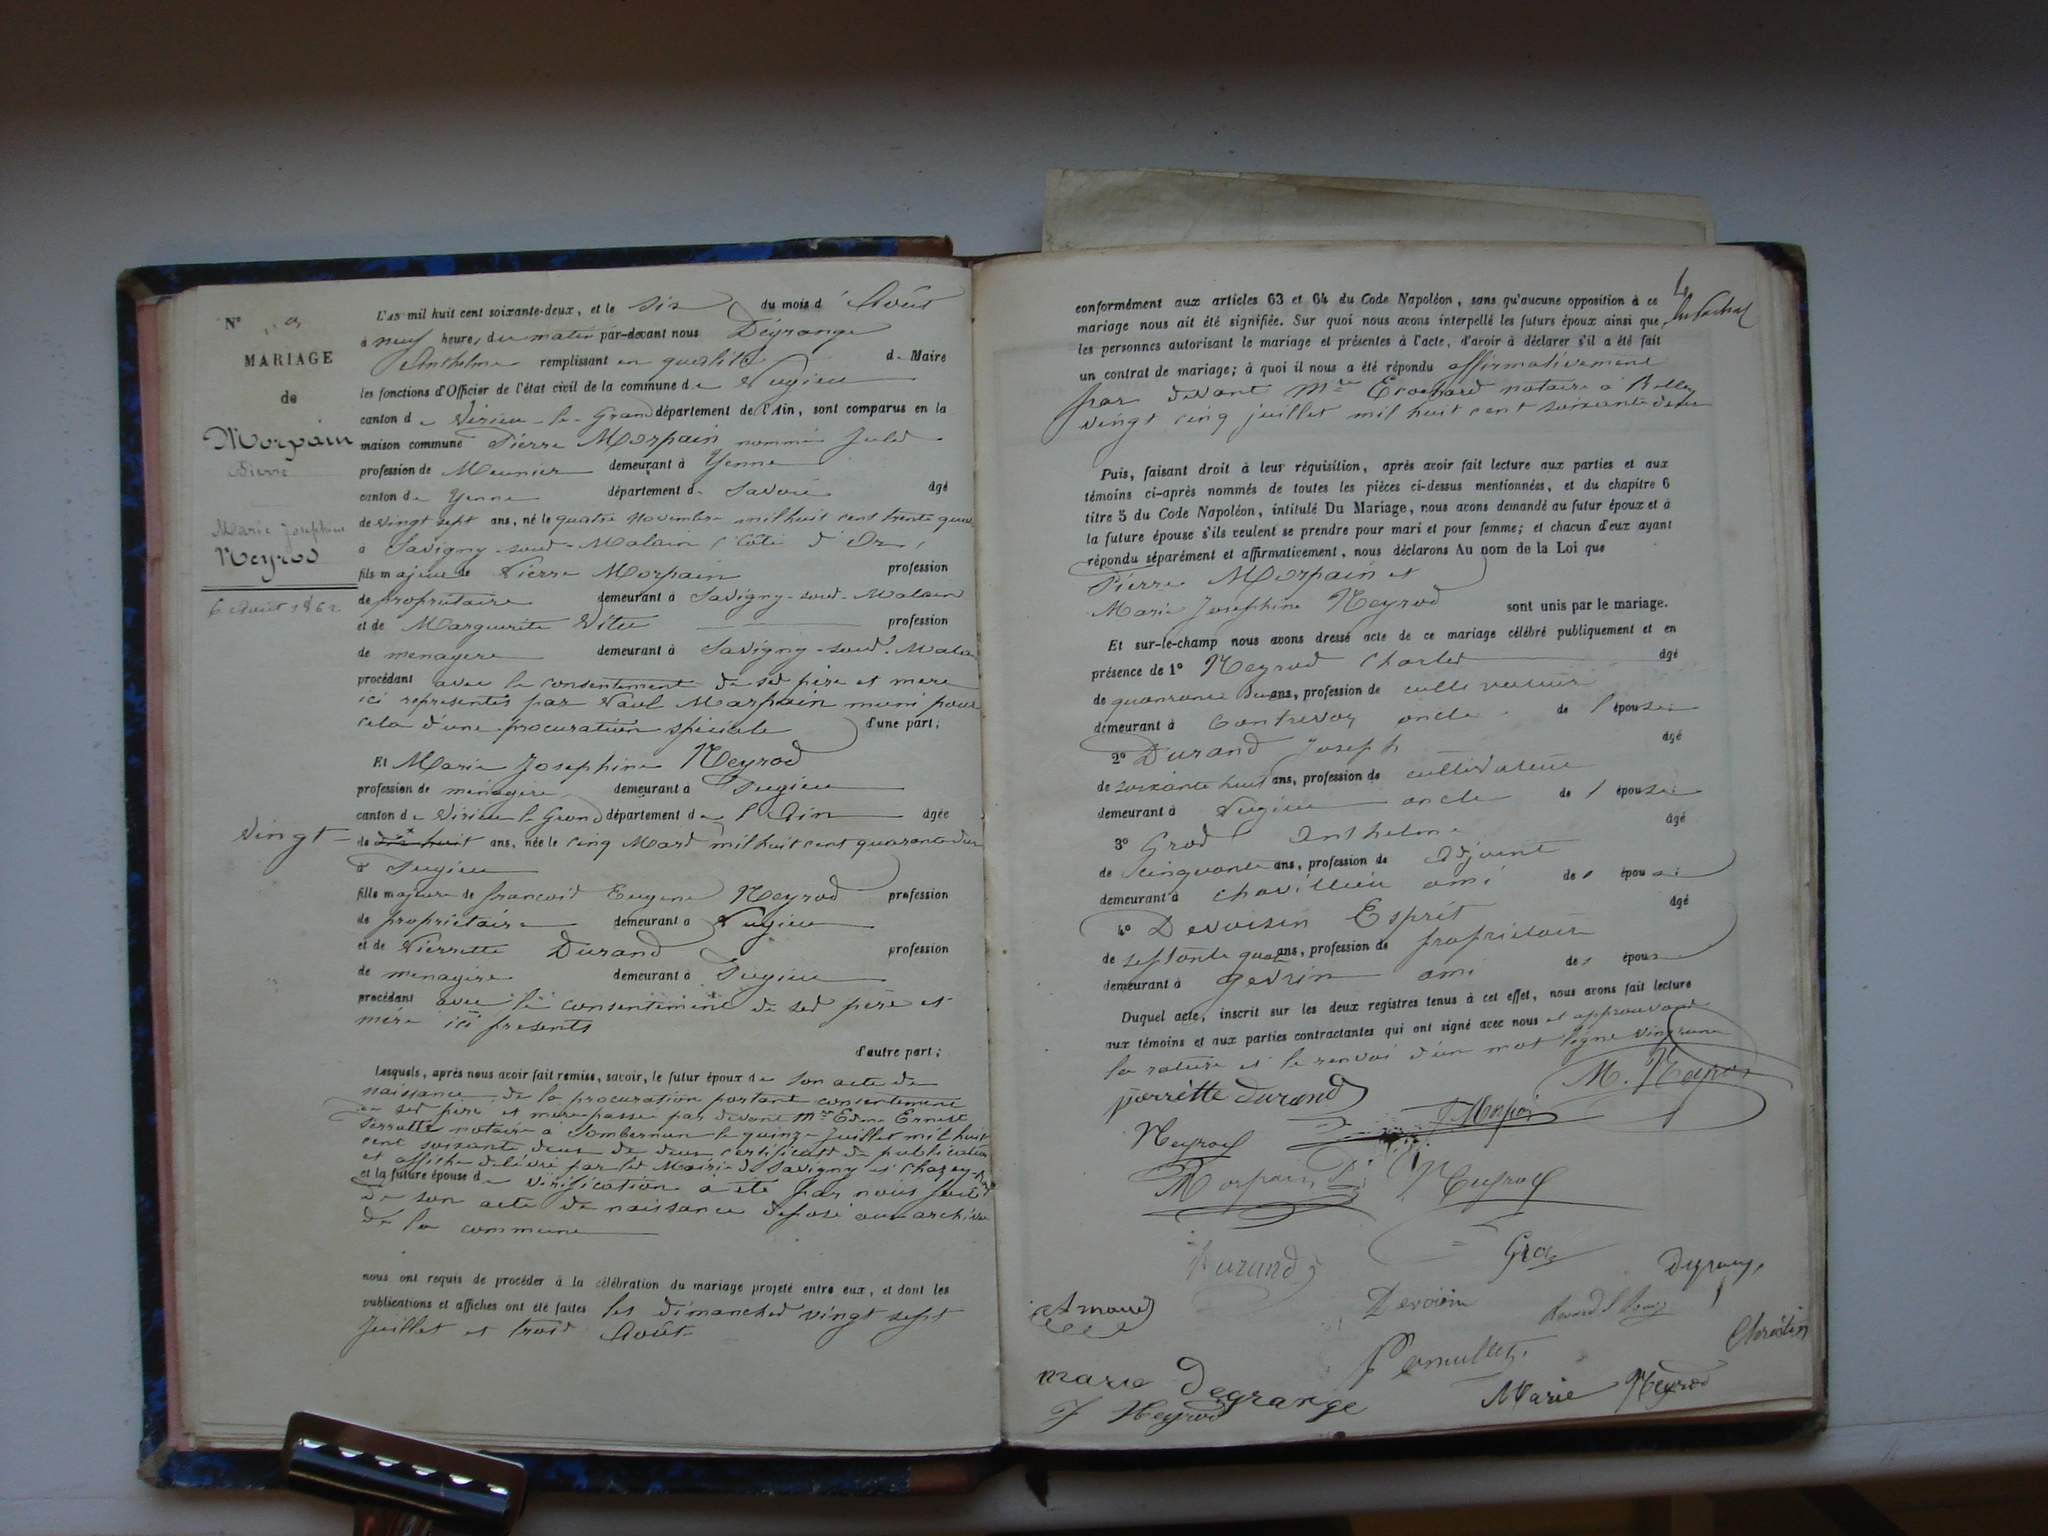 N° 9
MARIAGE
de
Morpain
Pierre
Marie Josephine
Neyrod
6 Août 1862
L'an mil huit cent soixante-deux, et le six du mois d' Août
à neuf heures du matin par-devant nous Dégrange
Anthelme remplissant en qualité de Maire
les fonctions d'Officier de l'état civil de la commune de Pugieu
canton de Virieu-le-Grand département de l'Ain, sont comparus en la
maison commune Pierre Morpain nommé Jules
profession de Meunier demeurant à Yenne
canton de Yenne département de Savoie âgé
de vingt sept ans, né le quatre novembre mil huit cent trente quatre
à Savigny-sous-Malain (Côte d'Or)
fils majeur de Pierre Morpain profession
de propriétaire demeurant à Savigny-sous-Malain
et de Marguerite Viteu profession
de menagere demeurant à Savigny-sous-Malain
procédant avec le consentement de ses père et mere
ici representés par Paul Morpain muni pour
cela d'une procuration spéciale d'une part;
Et Marie Josephine Neyrod
profession de menagère demeurant à Pugieu
canton de Virieu le Grand département de l'Ain âgée
vingt de dix huit ans, née le cinq Mars mil huit cent quarante deux
à Pugieu
fille majeure de francois Eugene Neyrod profession
de propriétaire demeurant à Pugieu
et de Pierrette Durand profession
de menagère demeurant à Pugieu
procédant avec le consentement de ses père et
mère ici presents
d'autre part;
Lesquels, après nous avoir fait remise, savoir, le futur époux de son acte de
naissance, de la procuration portant consentement
de ses père et mere passé par devant Mre Edme Ernest
Perrotte notaire à Sombernon le quinze juillet mil huit
cent soixante deux de deux certificats de publication
et affiche delivré par les Mairie de Savigny et Chazey-Bons
et la future épouse de vérification a été par nous faite
de son acte de naissance déposé aux archives
de la commune
nous ont requis de procéder à la célébration du mariage projeté entre eux, et dont les
publications et affiches ont été faites les dimanches vingt sept
Juillet et trois Août
conformément aux articles 63 et 64 du Code Napoléon, sans qu'aucune opposition à ce
mariage nous ait été signifiée. Sur quoi nous avons interpellé les futurs époux ainsi que
les personnes autorisant le mariage et présentes à l'acte, d'avoir à déclarer s'il a été fait
un contrat de mariage; à quoi il nous a été répondu affirmativement
par devant Mre notaire à Belley
vingt cinq juillet mil huit cent soixante deux
Puis, faisant droit à leur réquisition, après avoir fait lecture aux parties et aux
témoins ci-après nommés de toutes les pièces ci-dessus mentionnées, et du chapitre 6
titre 5 du Code Napoléon, intitulé Du Mariage, nous avons demandé au futur époux et à
la future épouse s'ils veulent se prendre pour mari et pour femme; et chacun d'eux ayant
répondu séparément et affirmativement, nous déclarons Au nom de la Loi que
Pierre Morpain et
Marie Josephine Neyrod sont unis par le mariage.
Et sur-le-champ nous avons dressé acte de ce mariage célébré publiquement et en
présence de 1° Neyrod Charles âgé
de quarante deux ans, profession de cultivateur
demeurant à Contrevoz oncle de l'épouse
2° Durand Joseph âgé
de soixante huit ans, profession de cultivateur
demeurant à Pugieu oncle de l'épouse
3° Gros Anthelme âgé
de cinquante ans, profession de Adjoint
demeurant à Chavillieu ami des époux
4° Devoisin Esprit âgé
de septante quatre ans, profession de propriétaire
demeurant à gevrin ami des époux
Duquel acte, inscrit sur les deux registres tenus à cet effet, nous avons fait lecture
aux témoins et aux parties contractantes qui ont signé avec nous et approuvant
la rature et le renvoi d'un mot ligne vingt une
pierrette durand M. Neyrod
Neyrod Morpain
Morpain P. Neyrod
Durand Gros Degrange
Arnaud Devoisin
Christin
marie degrange Marie Neyrod
J Neyrod